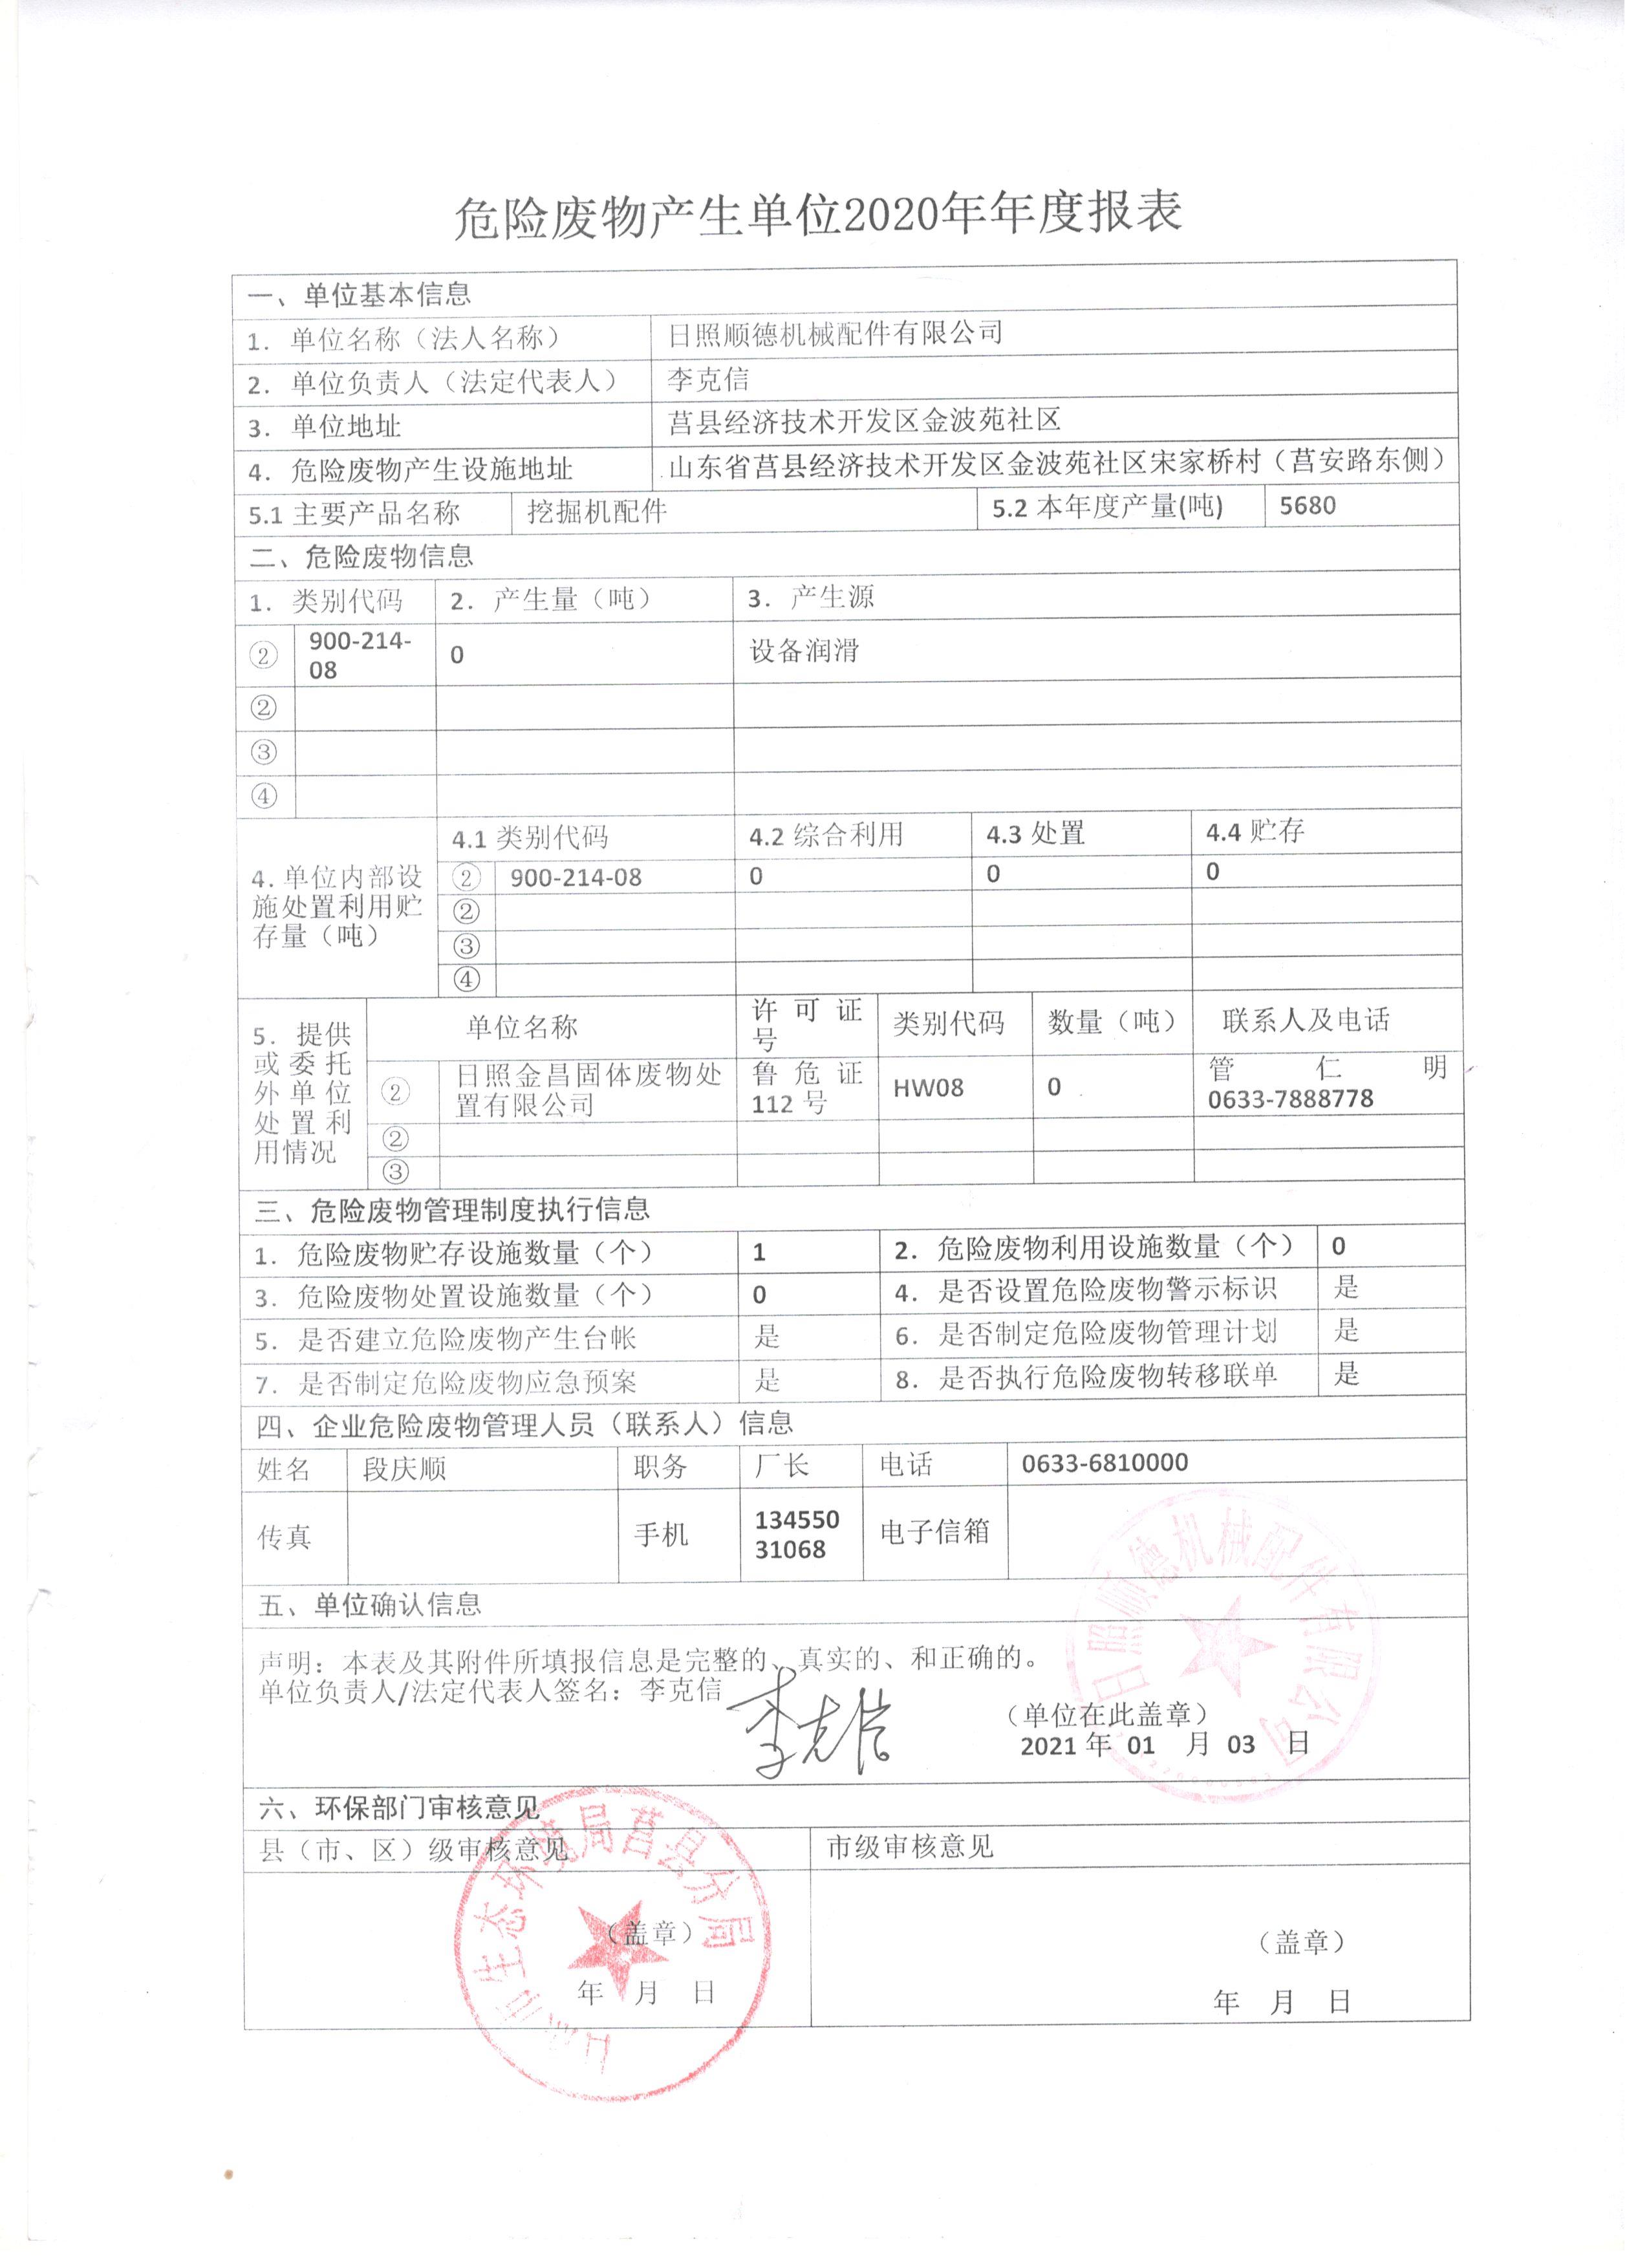 危险废物产生单位2020年年度报表
一、单位基本信息
1. 单位名称（法人名称） 日照顺德机械配件有限公司
2. 单位负责人（法定代表人） 李克信
3. 单位地址 莒县经济技术开发区金波苑社区
4. 危险废物产生设施地址 山东省莒县经济技术开发区金波苑社区宋家桥村（莒安路东侧）
5.1 主要产品名称 挖掘机配件 5.2 本年度产量(吨) 5680
二、危险废物信息
1. 类别代码 2. 产生量（吨） 3. 产生源
② 900-214-
08 0 设备润滑
②
③
④
4.单位内部设
施处置利用贮
存量（吨）
4.1 类别代码 4.2 综合利用 4.3 处置 4.4 贮存
② 900-214-08 0 0 0
②
③
④
5. 提供
或委托
外单位
处置利
用情况
单位名称 许可证
号 类别代码 数量（吨） 联系人及电话
② 日照金昌固体废物处
置有限公司 鲁危证
112 号 HW08 0 管仁明
0633-7888778
②
③
三、危险废物管理制度执行信息
1. 危险废物贮存设施数量（个） 1 2. 危险废物利用设施数量（个） 0
3. 危险废物处置设施数量（个） 0 4. 是否设置危险废物警示标识 是
5. 是否建立危险废物产生台帐 是 6. 是否制定危险废物管理计划 是
7. 是否制定危险废物应急预案 是 8. 是否执行危险废物转移联单 是
四、企业危险废物管理人员（联系人）信息
姓名 段庆顺 职务 厂长 电话 0633-6810000
传真 手机 134550
31068 电子信箱
五、单位确认信息
声明：本表及其附件所填报信息是完整的、真实的、和正确的。
单位负责人/法定代表人签名：李克信
李克信
（单位在此盖章）
2021 年 01 月 03 日
日照顺德机械配件有限公司
六、环保部门审核意见
县（市、区）级审核意见 市级审核意见
（盖章） （盖章）
年 月 日 年 月 日
生态环境局莒县分局